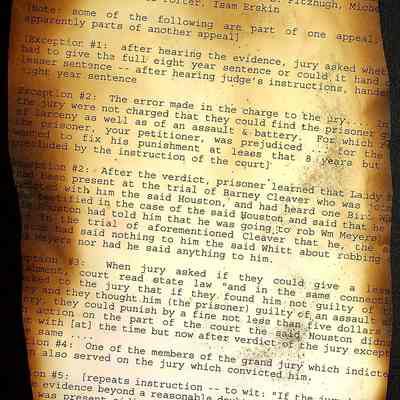 Porter. Isam Erskin Fitzhugh, Miche
[Note: some of the following are part of one appeal,
apparently parts of another appeal]
[Exception #1: after hearing the evidence, jury asked whet
had to give the full eight year sentence or could it hand
lesser sentence -- after hearing judge's instructions, hande
ight year sentence
Exception #2: The error made in the charge to the jury.... In
the jury were not charged that they could find the prisoner g
of larceny as well as of an assault & battery. For which
prisoner, your petitioner, was prejudiced for the
wanted to fix his punishment at leaes that 8 years but
precluded by the instruction of the court]
eption #2: After the verdict, prisoner learned that
had been present at the trial of Barney Cleaver who was
with him the said Houston, and had heard one
testified in the case of the said Houston and said that he
ston had told him that he was going to rob Wm Meyers
in the trial of aforementioned Cleaver that he, the
had said nothing to him the said Whitt about robbing
Meyers nor had he said anything to him.
ption #3: When jury asked if they could give a less
court read state law "and in the same connecti
to the jury that if they found him not guilty of
and they thought him (the prisoner) guilty of an assault
ry, they could punish by a fine not less than five dollars
action on the part of the court the said Houston didn
with [at] the time but now after verdict of the jury except
same ....
tion #4: One of the members of the grand jury which indicte
also served on the jury which convicted him.
ion #5: [repeats instruction -- to wit: "If the jury
e evidence beyond a reasonable
was present